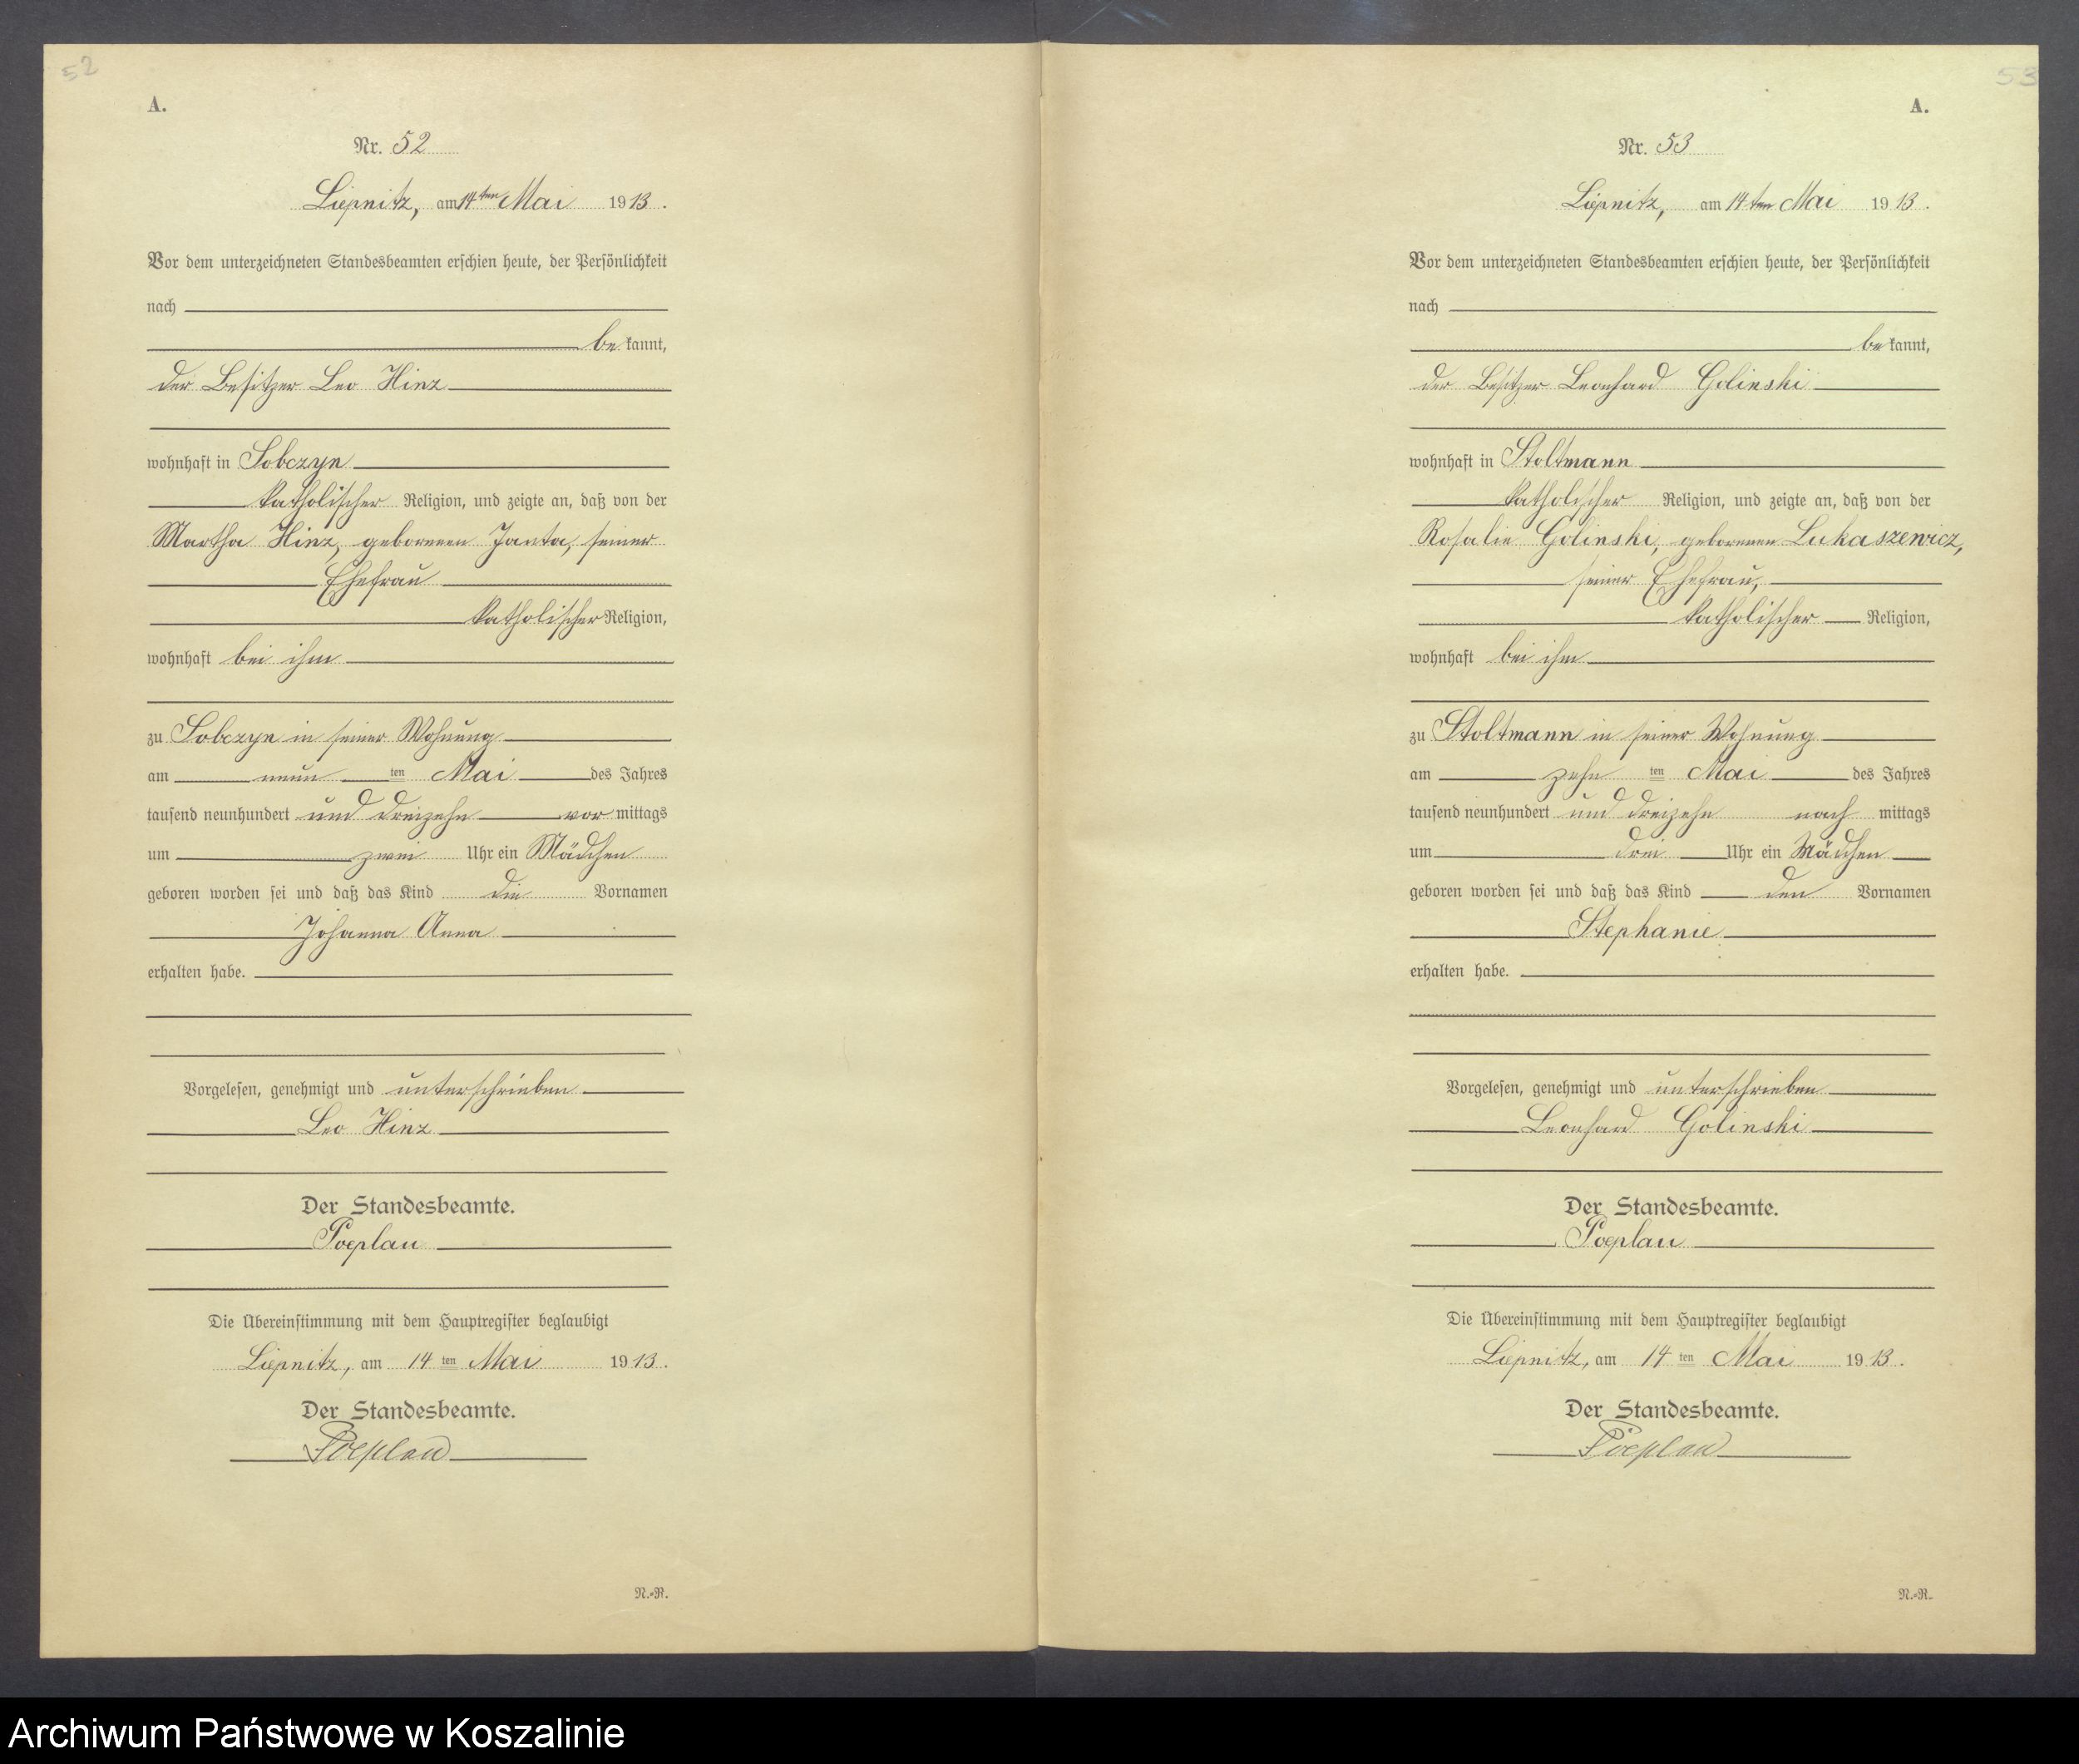 52
A.
Nr. 52
Liepnitz, am 14ten Mai 1913.
Vor dem unterzeichneten Standesbeamten erschien heute, der Persönlichkeit
nach
be kannt,
der Besitzer Leo Hinz
wohnhaft in Sobczyn
katholischer Religion, und zeigte an, daß von der
Martha Hinz, geborenen Janta, seiner
Ehefrau
katholischer Religion,
wohnhaft bei ihm
zu Sobczyn in seiner Wohnung
am neun ten Mai des Jahres
tausend neunhundert und dreizehn vor mittags
um zwei Uhr ein Mädchen
geboren worden sei und daß das Kind die Vornamen
Johanna Anna
erhalten habe.
Vorgelesen, genehmigt und unterschrieben
Leo Hinz
Der Standesbeamte.
Poeplau
Die Übereinstimmung mit dem Hauptregister beglaubigt
Liepnitz, am 14 ten Mai 1913.
Der Standesbeamte.
Poeplau
N.=R.
53
A.
Nr. 53
Liepnitz, am 14ten Mai 1913.
Vor dem unterzeichneten Standesbeamten erschien heute, der Persönlichkeit
nach
be kannt,
der Besitzer Leonhard Golinski
wohnhaft in Stoltmann
katholischer Religion, und zeigte an, daß von der
Rosalie Golinski, geborenen Lukaszewicz,
seiner Ehefrau,
katholischer Religion,
wohnhaft bei ihm
zu Stoltmann in seiner Wohnung
am zehn ten Mai des Jahres
tausend neunhundert und dreizehn nach mittags
um drei Uhr ein Mädchen
geboren worden sei und daß das Kind den Vornamen
Stephanie
erhalten habe.
Vorgelesen, genehmigt und unterschrieben
Leonhard Golinski
Der Standesbeamte.
Poeplau
Die Übereinstimmung mit dem Hauptregister beglaubigt
Liepnitz, am 14 ten Mai 1913.
Der Standesbeamte.
Poeplau
N.=R.
Archiwum Państwowe w Koszalinie